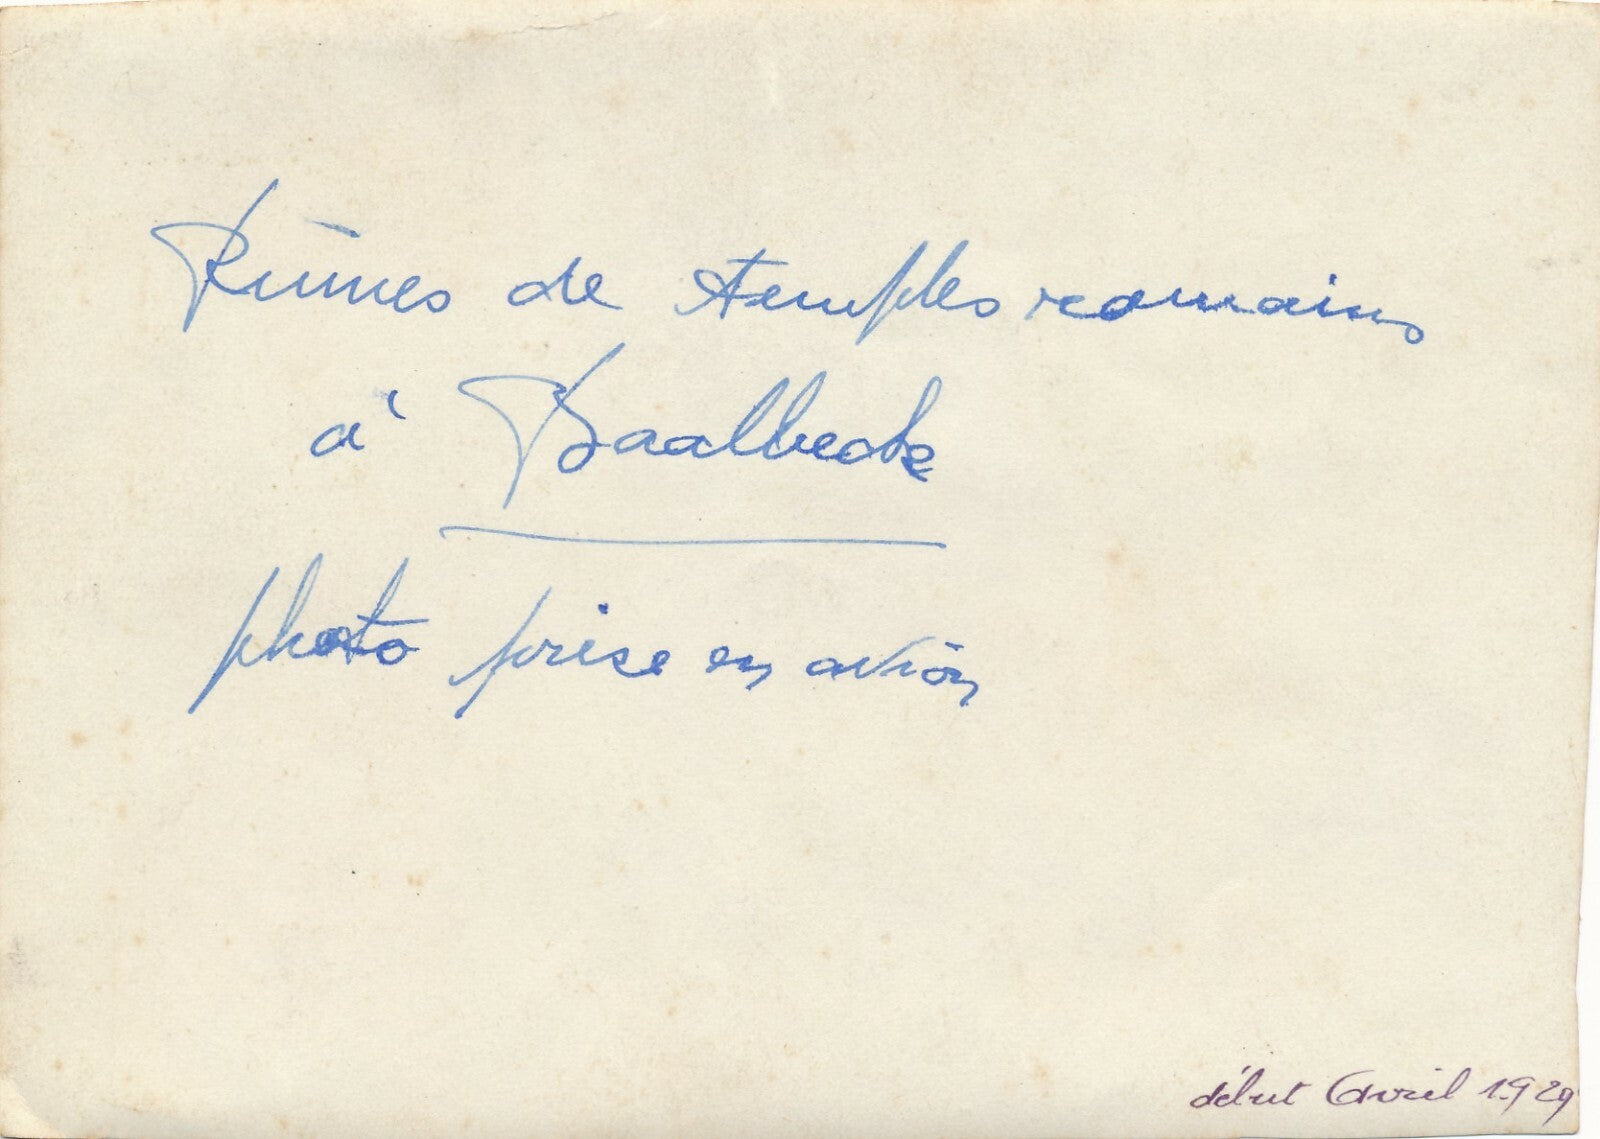 Ruines de temples romains
à Baalbeck
photo prise en avion
début Avril 1929